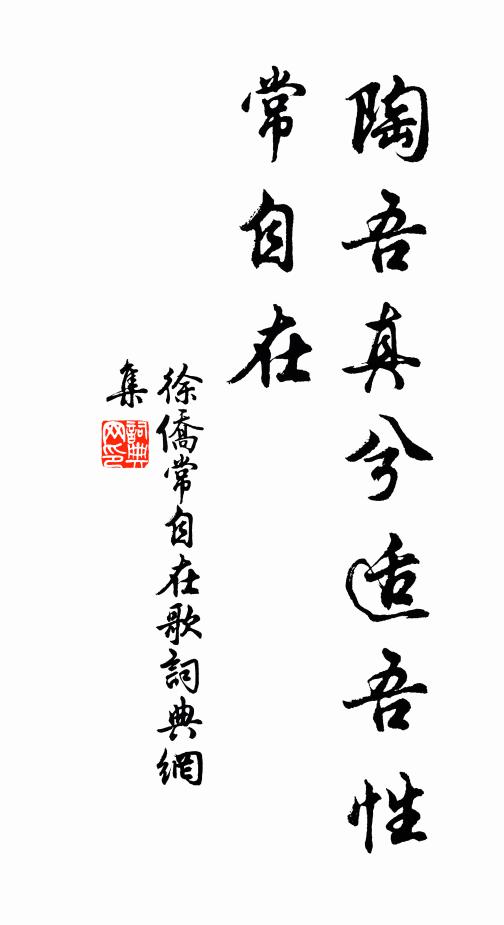 陶吾真兮适吾性
常自在
徐僑常自在歌詞典網
集
詞典
网印